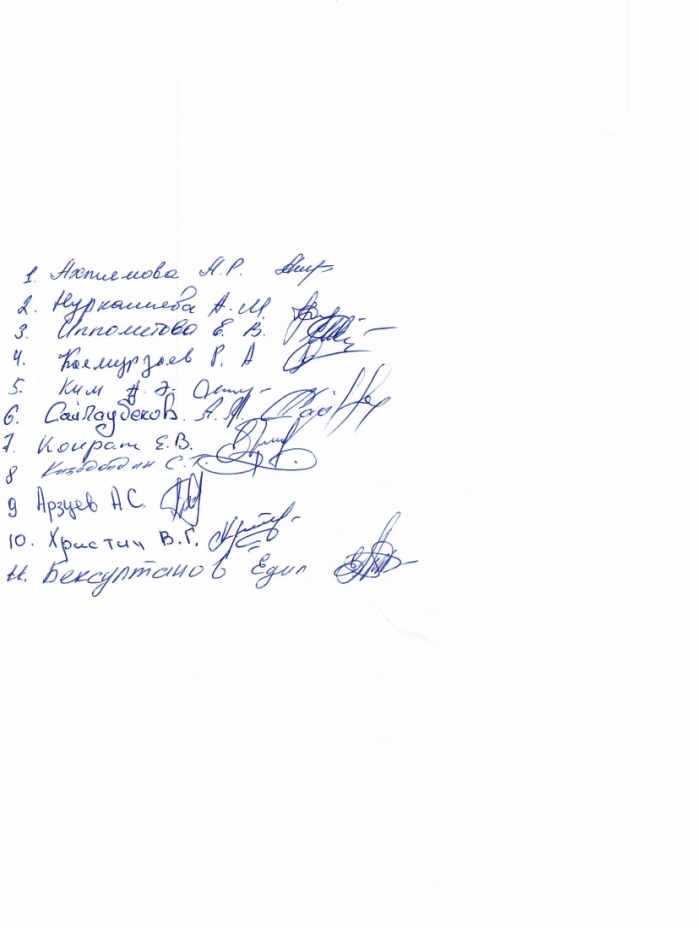 1. Ахпиемова А.Р.
2. Нуркашева А.М.
3. Ипполитова Е. В.
4. Коемурзаев Р. А
5. Ким
6. Сайлаубеков А.А.
7. Конрат Е.В.
8 С.Т.
9 Арзуев А.С.
10. Христич В.Г.
11. Бексултанов Едил